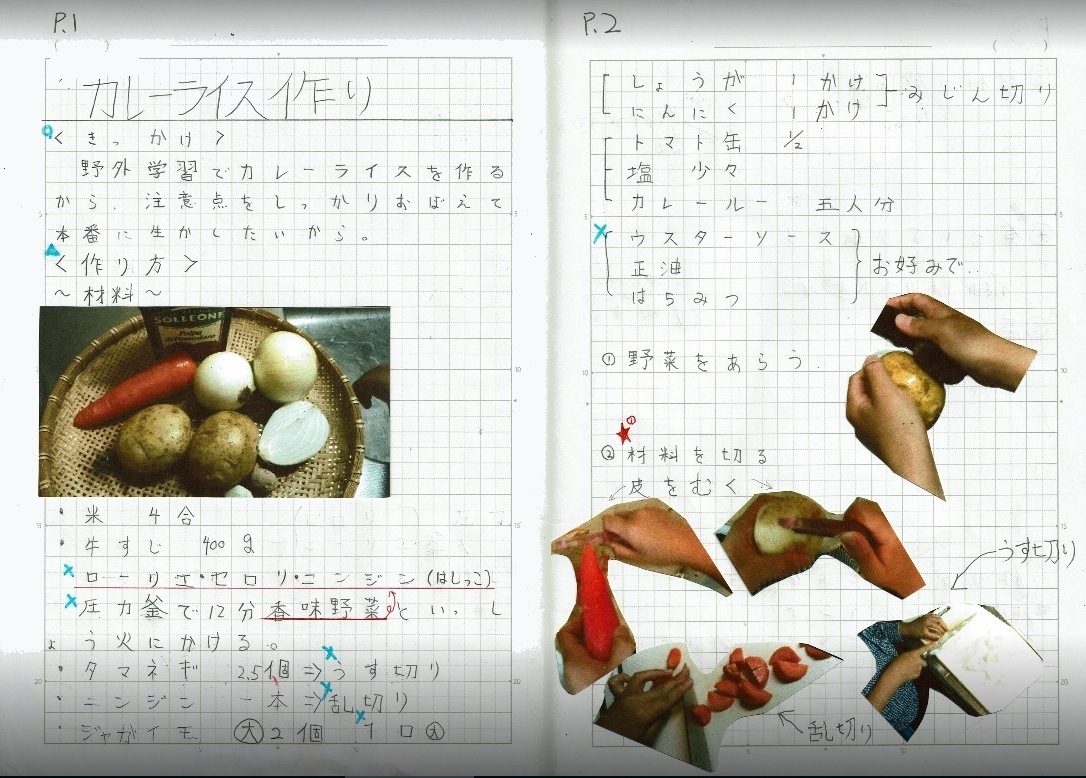 P.1
カレーライス作り
<きっかけ>
野外学習でカレーライスを作る
から、注意点をしっかりおぼえて
本番に生かしたいから。
<作り方>
~材料~
SOLLEONE
Polpa
di Pomodoro
・米 4合
・牛すじ 400g
ローリエ・セロリ・ニンジン(はしっこ)
圧力釜で12分香味野菜といっし
ょう火にかける。
・タマネギ 2.5個⇒うす切り
・ニンジン 一本⇒乱切り
・ジャガイモ 大2個
P.2
しょうが 1かけ
にんにく 1かけ
みじん切り
トマト缶 1/2
塩 少々
カレールー 五人分
ウスターソース
正油
はちみつ
お好みで..
①野菜をあらう.
②材料を切る
皮をむく
うす切り
乱切り